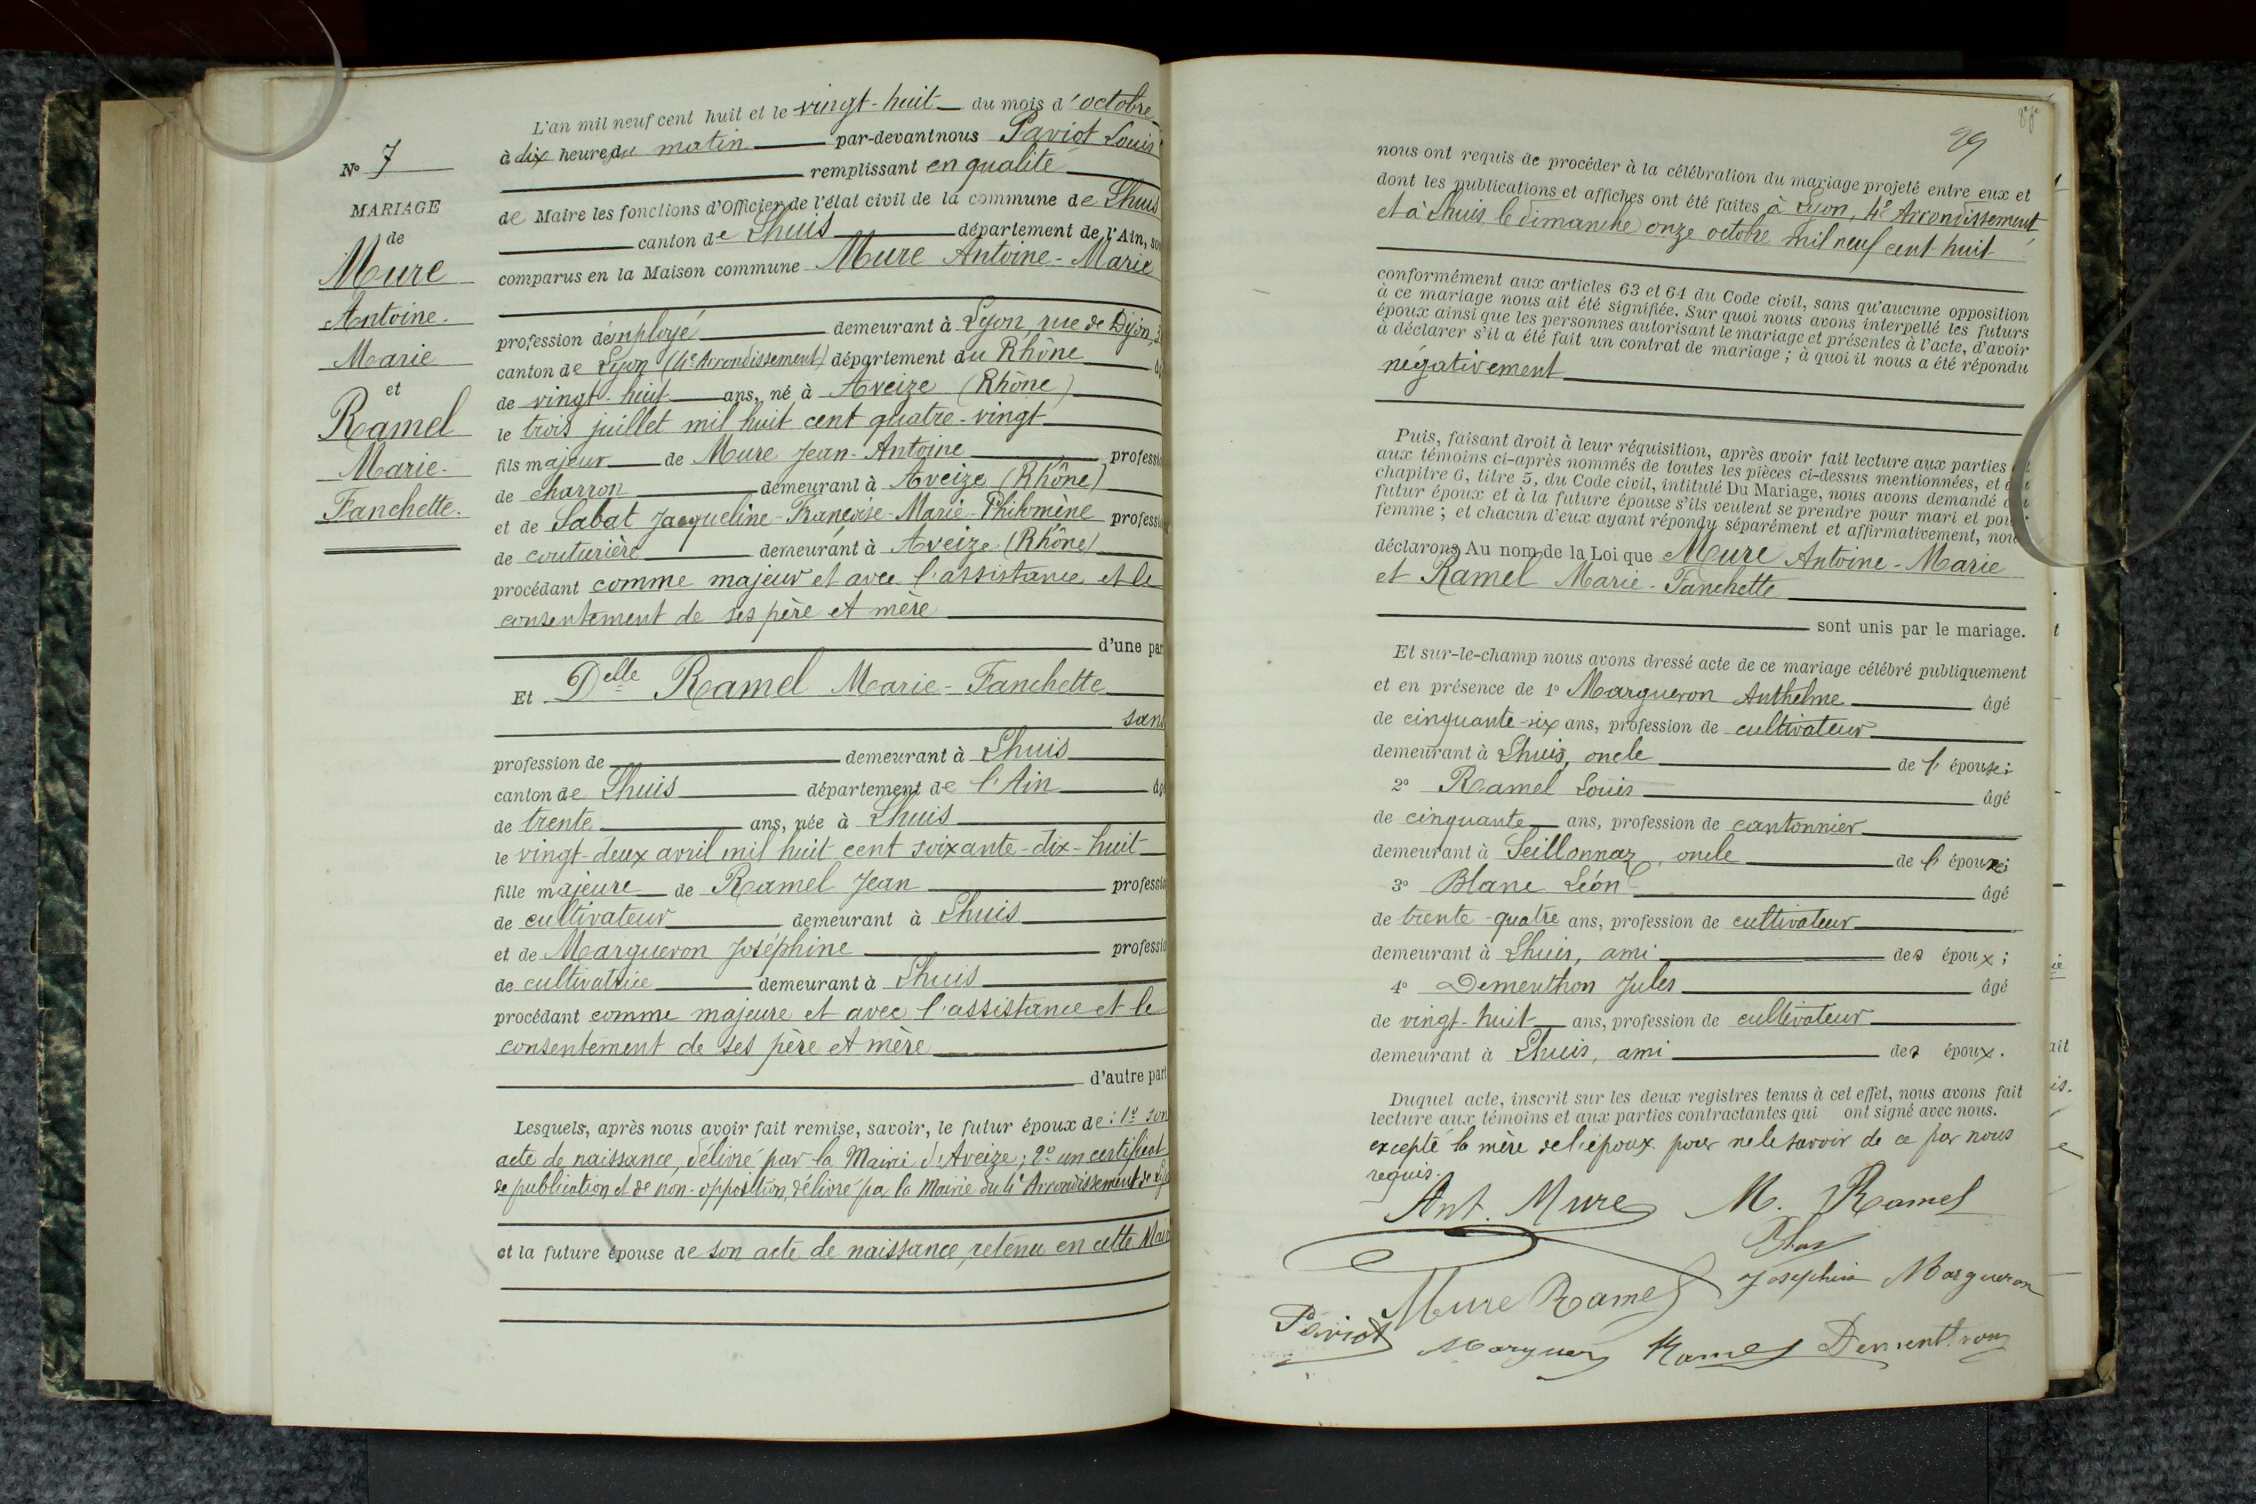 N° 7
MARIAGE
de
Mure
Antoine-
Marie
et
Ramel
Marie-
Fanchette.
L'an mil neuf cent huit et le vingt-huit du mois d'octobre
à dix heure du matin par-devant nous Paviot Louis
remplissant en qualité
de Maire les fonctions d'Officier de l'état civil de la commune de Lhuis
canton de Lhuis département de l'Ain, so
comparus en la Maison commune Mure Antoine-Marie
profession d'employé demeurant à Lyon, rue de Dijon,
canton de Lyon (4e Arrondissement) département du Rhône âg
de vingt-huit ans, né à Aveize (Rhône)
le trois juillet mil huit cent quatre-vingt
fils majeur de Mure Jean-Antoine professio
de charron demeurant à Aveize (Rhône)
et de Sabat Jacqueline-Françoise-Marie-Philomène professio
de couturière demeurant à Aveize (Rhône)
procédant comme majeur et avec l'assistance et le
consentement de ses père et mère
d'une par
Et Delle Ramel Marie-Fanchette
sans
profession de demeurant à Lhuis
canton de Lhuis département de l'Ain âgé
de trente ans, née à Lhuis
le vingt-deux avril mil huit cent soixante-dix-huit
fille majeure de Ramel Jean professio
de cultivateur demeurant à Lhuis
et de Margueron Joséphine professio
de cultivatrice demeurant à Lhuis
procédant comme majeure et avec l'assistance et le
consentement de ses père et mère
d'autre part
Lesquels, après nous avoir fait remise, savoir, le futur époux de : 1° son
acte de naissance, délivré par la Mairie d'Aveize ; 2° un certificat
de publication et de non-opposition, délivré par la Mairie du 4e Arrondissement de Ly
et la future épouse de son acte de naissance, retenu en cette Mair
29
nous ont requis de procéder à la célébration du mariage projeté entre eux et
dont les publications et affiches ont été faites à Lyon, 4e Arrondissement,
et à Lhuis le dimanche onze octobre mil neuf cent huit
conformément aux articles 63 et 64 du Code civil, sans qu'aucune opposition
à ce mariage nous ait été signifiée. Sur quoi nous avons interpellé les futurs
époux ainsi que les personnes autorisant le mariage et présentes à l'acte, d'avoir
à déclarer s'il a été fait un contrat de mariage ; à quoi il nous a été répondu
négativement
Puis, faisant droit à leur réquisition, après avoir fait lecture aux parties
aux témoins ci-après nommés de toutes les pièces ci-dessus mentionnées, et du
chapitre 6, titre 5, du Code civil, intitulé Du Mariage, nous avons demandé au
futur époux et à la future épouse s'ils veulent se prendre pour mari et pour
femme ; et chacun d'eux ayant répondu séparément et affirmativement, nous
déclarons Au nom de la Loi que Mure Antoine-Marie
et Ramel Marie-Fanchette
sont unis par le mariage.
Et sur-le-champ nous avons dressé acte de ce mariage célébré publiquement
et en présence de 1° Margueron Anthelme âgé
de cinquante-six ans, profession de cultivateur
demeurant à Lhuis, oncle de l'épouse ;
2° Ramel Louis âgé
de cinquante ans, profession de cantonnier
demeurant à Seillonnaz, oncle de l'épouse ;
3° Blanc Léon âgé
de trente-quatre ans, profession de cultivateur
demeurant à Lhuis, ami des époux ;
4° Dementhon Jules âgé
de vingt-huit ans, profession de cultivateur
demeurant à Lhuis, ami des époux.
Duquel acte, inscrit sur les deux registres tenus à cet effet, nous avons fait
lecture aux témoins et aux parties contractantes qui ont signé avec nous.
excepté la mère de l'époux pour ne le savoir de ce par nous
requis.
Ant. Mure M. Ramel
Joséphine Margueron
Mure Ramel
Paviot Ramel Dementhon